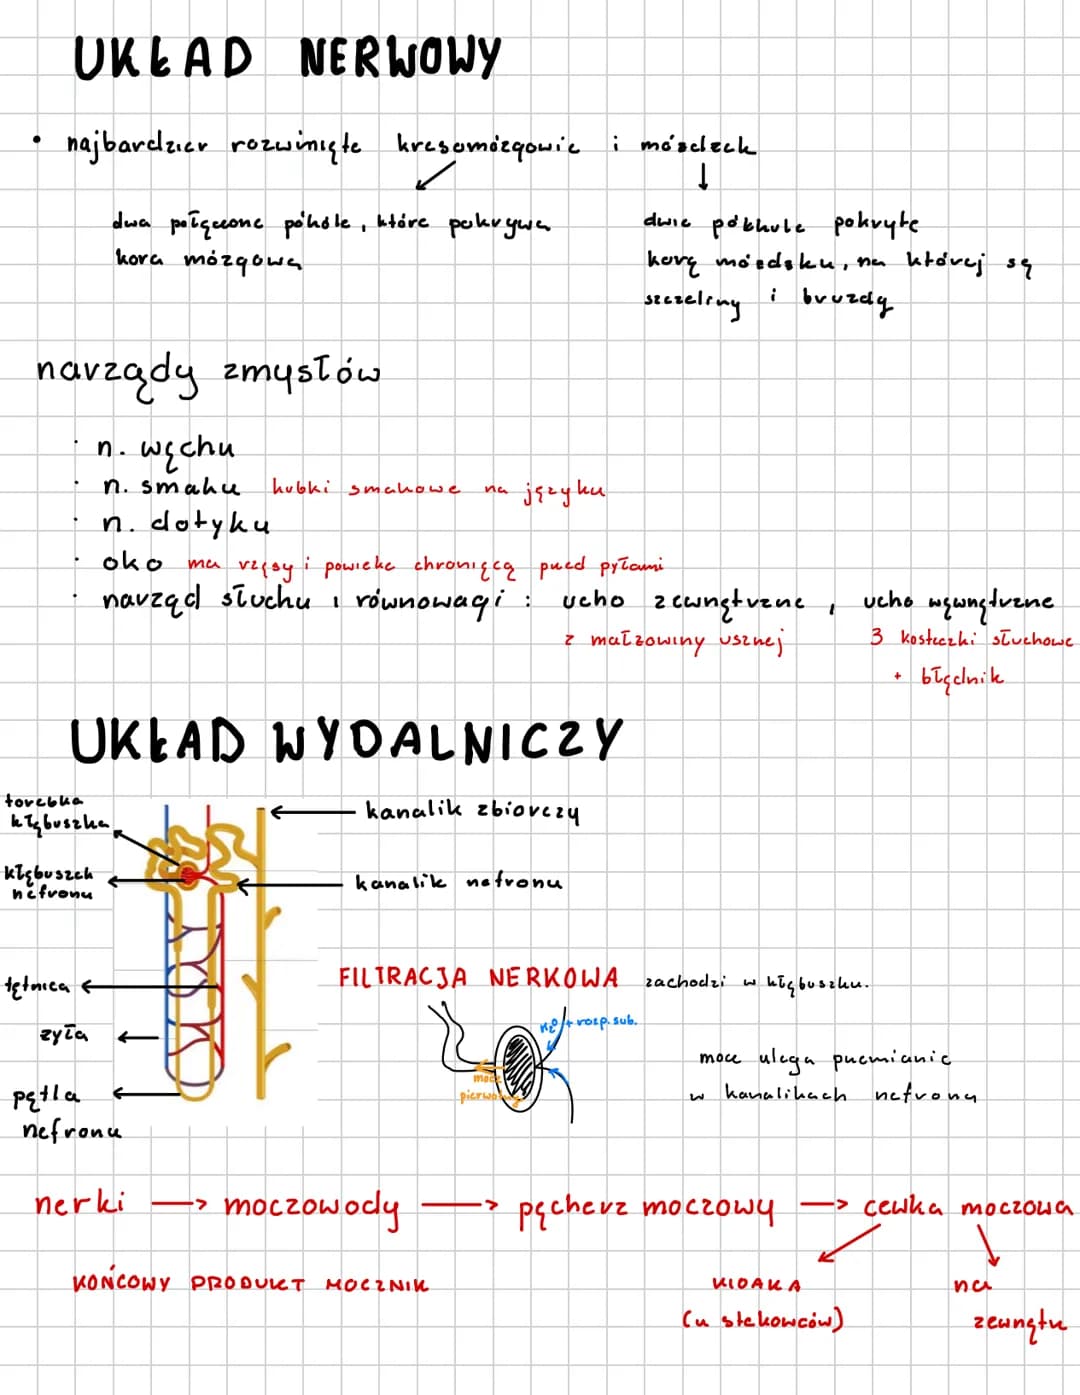 UKŁAD NERWOWY
• najbardziej rozwinięte kresomózgowie i móżdżek
dwa połączone półkule, które pokrywa
kora mózgowa
dwie półkule pokryte
korą móżdżku, na której są
szczeliny i bruzdy
narządy zmysłów
· n. węchu
· n. smaku kubki smakowe na języku
· n. dotyku
· oko ma rzęsy i powieke chroniącą przed pyłami
· narząd słuchu i równowagi : ucho zewnętrzne , ucho wewnętrzne
z małżowiny usznej
3 kosteczki słuchowe
+ błędnik
UKŁAD WYDALNICZY
torebka
kłębuszka
kanalik zbiorczy
kłębuszek
nefronu
kanalik nefronu
tętnica
FILTRACJA NERKOWA zachodzi w kłębuszku.
H2O + rozp. sub.
żyła
mocz
pierwotny
mocz ulega przemianie
w kanalikach nefronu
pętla
nefronu
nerki → moczowody → pęcherz moczowy → cewka moczowa
KOŃCOWY PRODUKT MOCZNIK
KLOAKA
(u stekowców)
na
zewnątrz